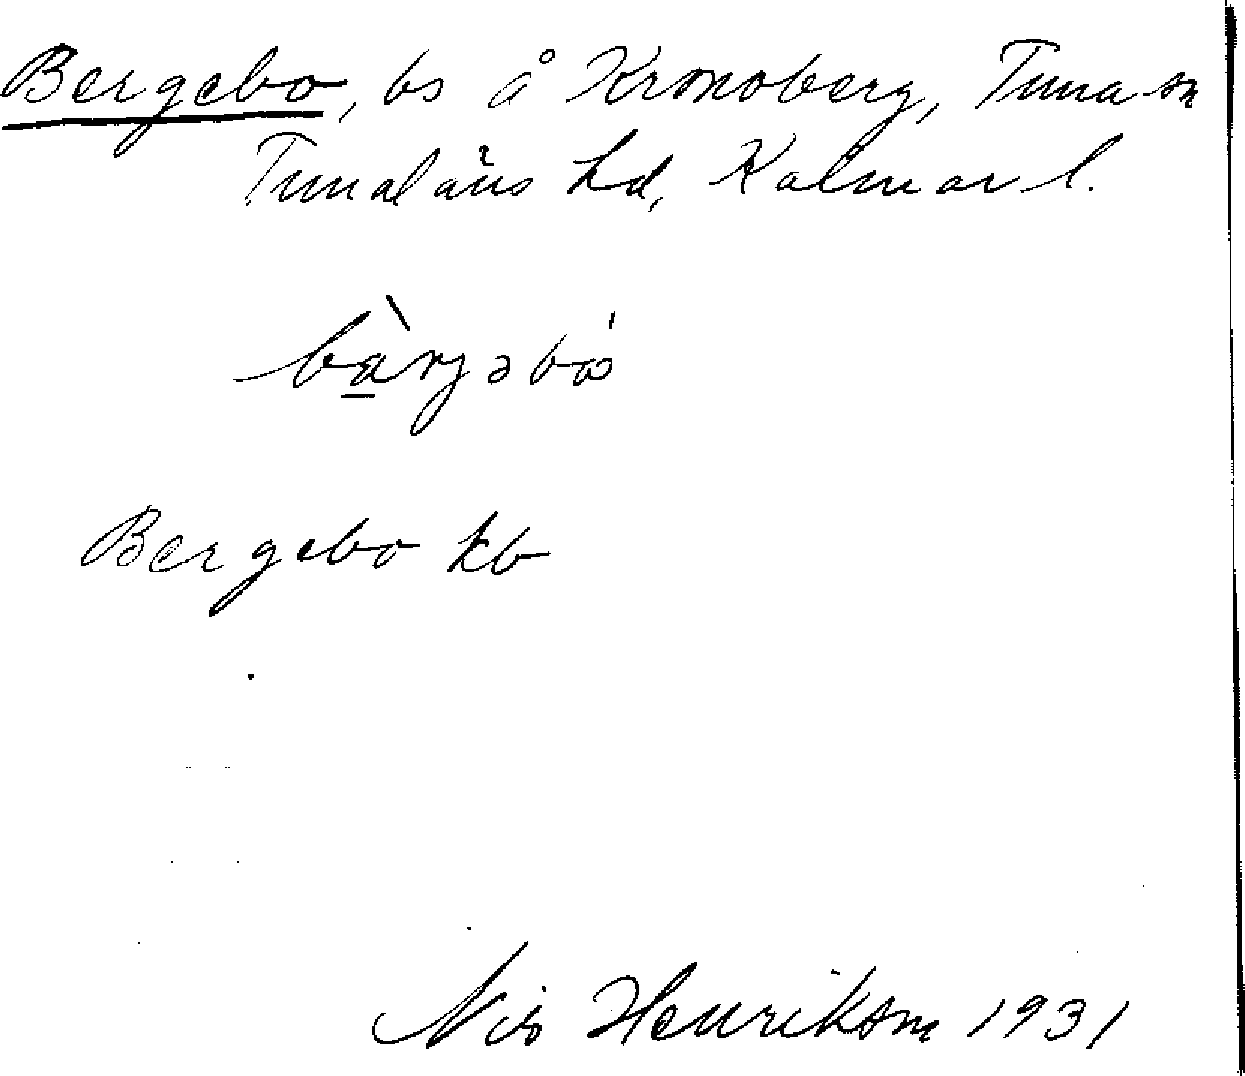 Bergebo, bs å Kronoberg, Tuna sn
Tunaläns hd, Kalmar l.
bàrjəbó
Bergebo kb
Nils Henrikson 1931